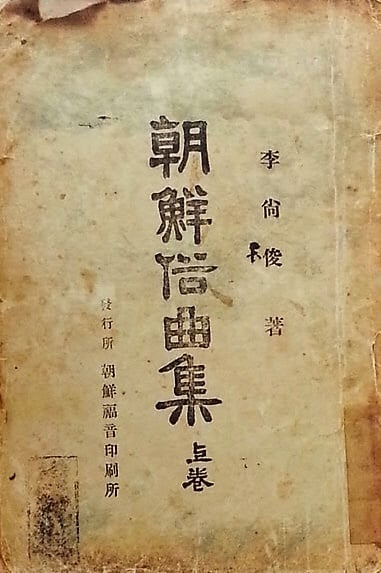 李尙俊 著
朝鮮俗曲集 上卷
發行所 朝鮮福音印刷所